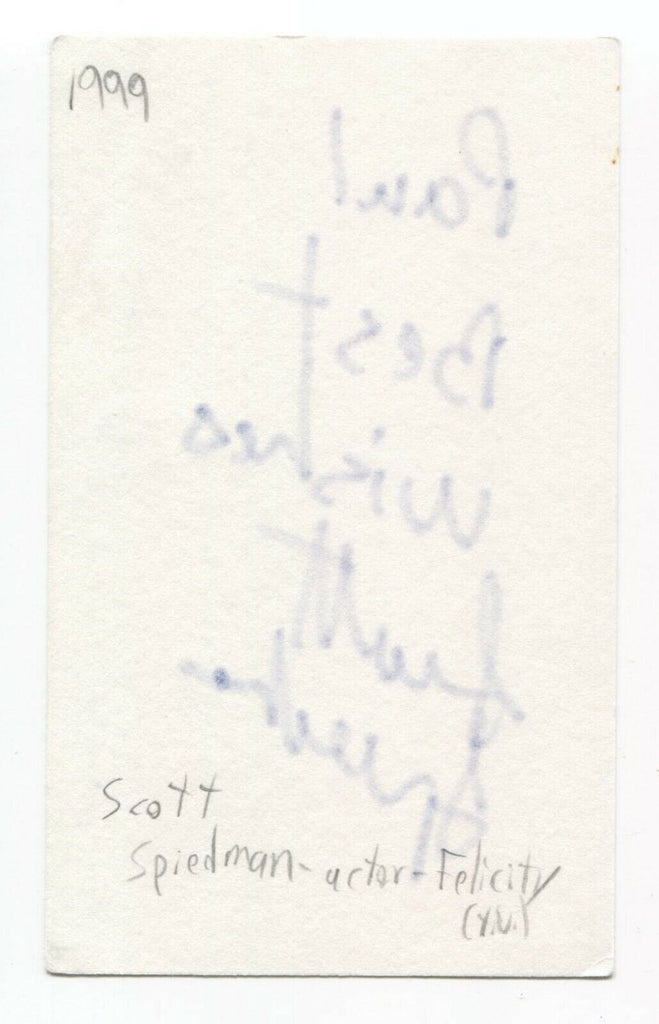 1999
Paul
Best
Wishes
Scott
Scott
Spiedman - actor - Felicity